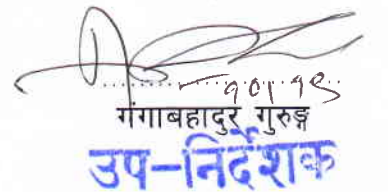 १०।१९
गंगाबहादुर गुरुङ्ग
उप-निर्देशक